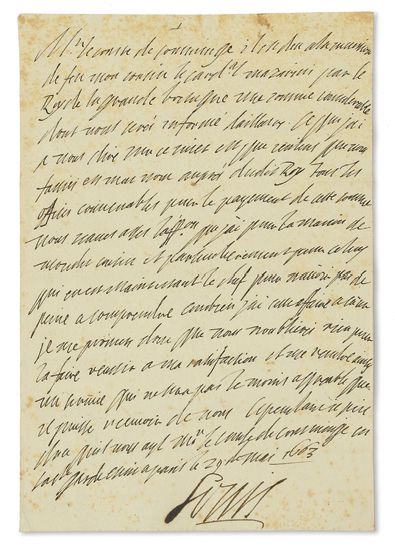 Mr le comte de comminge il est deu a la maison
de feu mon cousin le card.al mazarin par le
Roy de la grande bretagne une somme considerable
dont vous serés informé d'ailleurs ce que j'ai
a vous dire sur ce sujet est que voulant que vous
faciés en mon nom auprez dudit Roy tous les
offices convenables pour le payement de cette somme
vous sçavez assez l'affection que j'ai pour la maison de
mondit cousin et particulierement pour celuy
qui en est maintenant le chef pour n'avoir pas de
peine a comprendre combien j'ai cette affaire a cœur
je me promets donc que vous n'oublierés rien pour
la faire reussir a ma satisfaction et me rendre en cela
un service qui ne sera pas le moins agreable que
je puisse recevoir de vous cependant je prie
dieu qu'il vous ayt Mr. le comte de comminge en
sa s.te garde escrit a paris le 29 de mai 1663
Louis